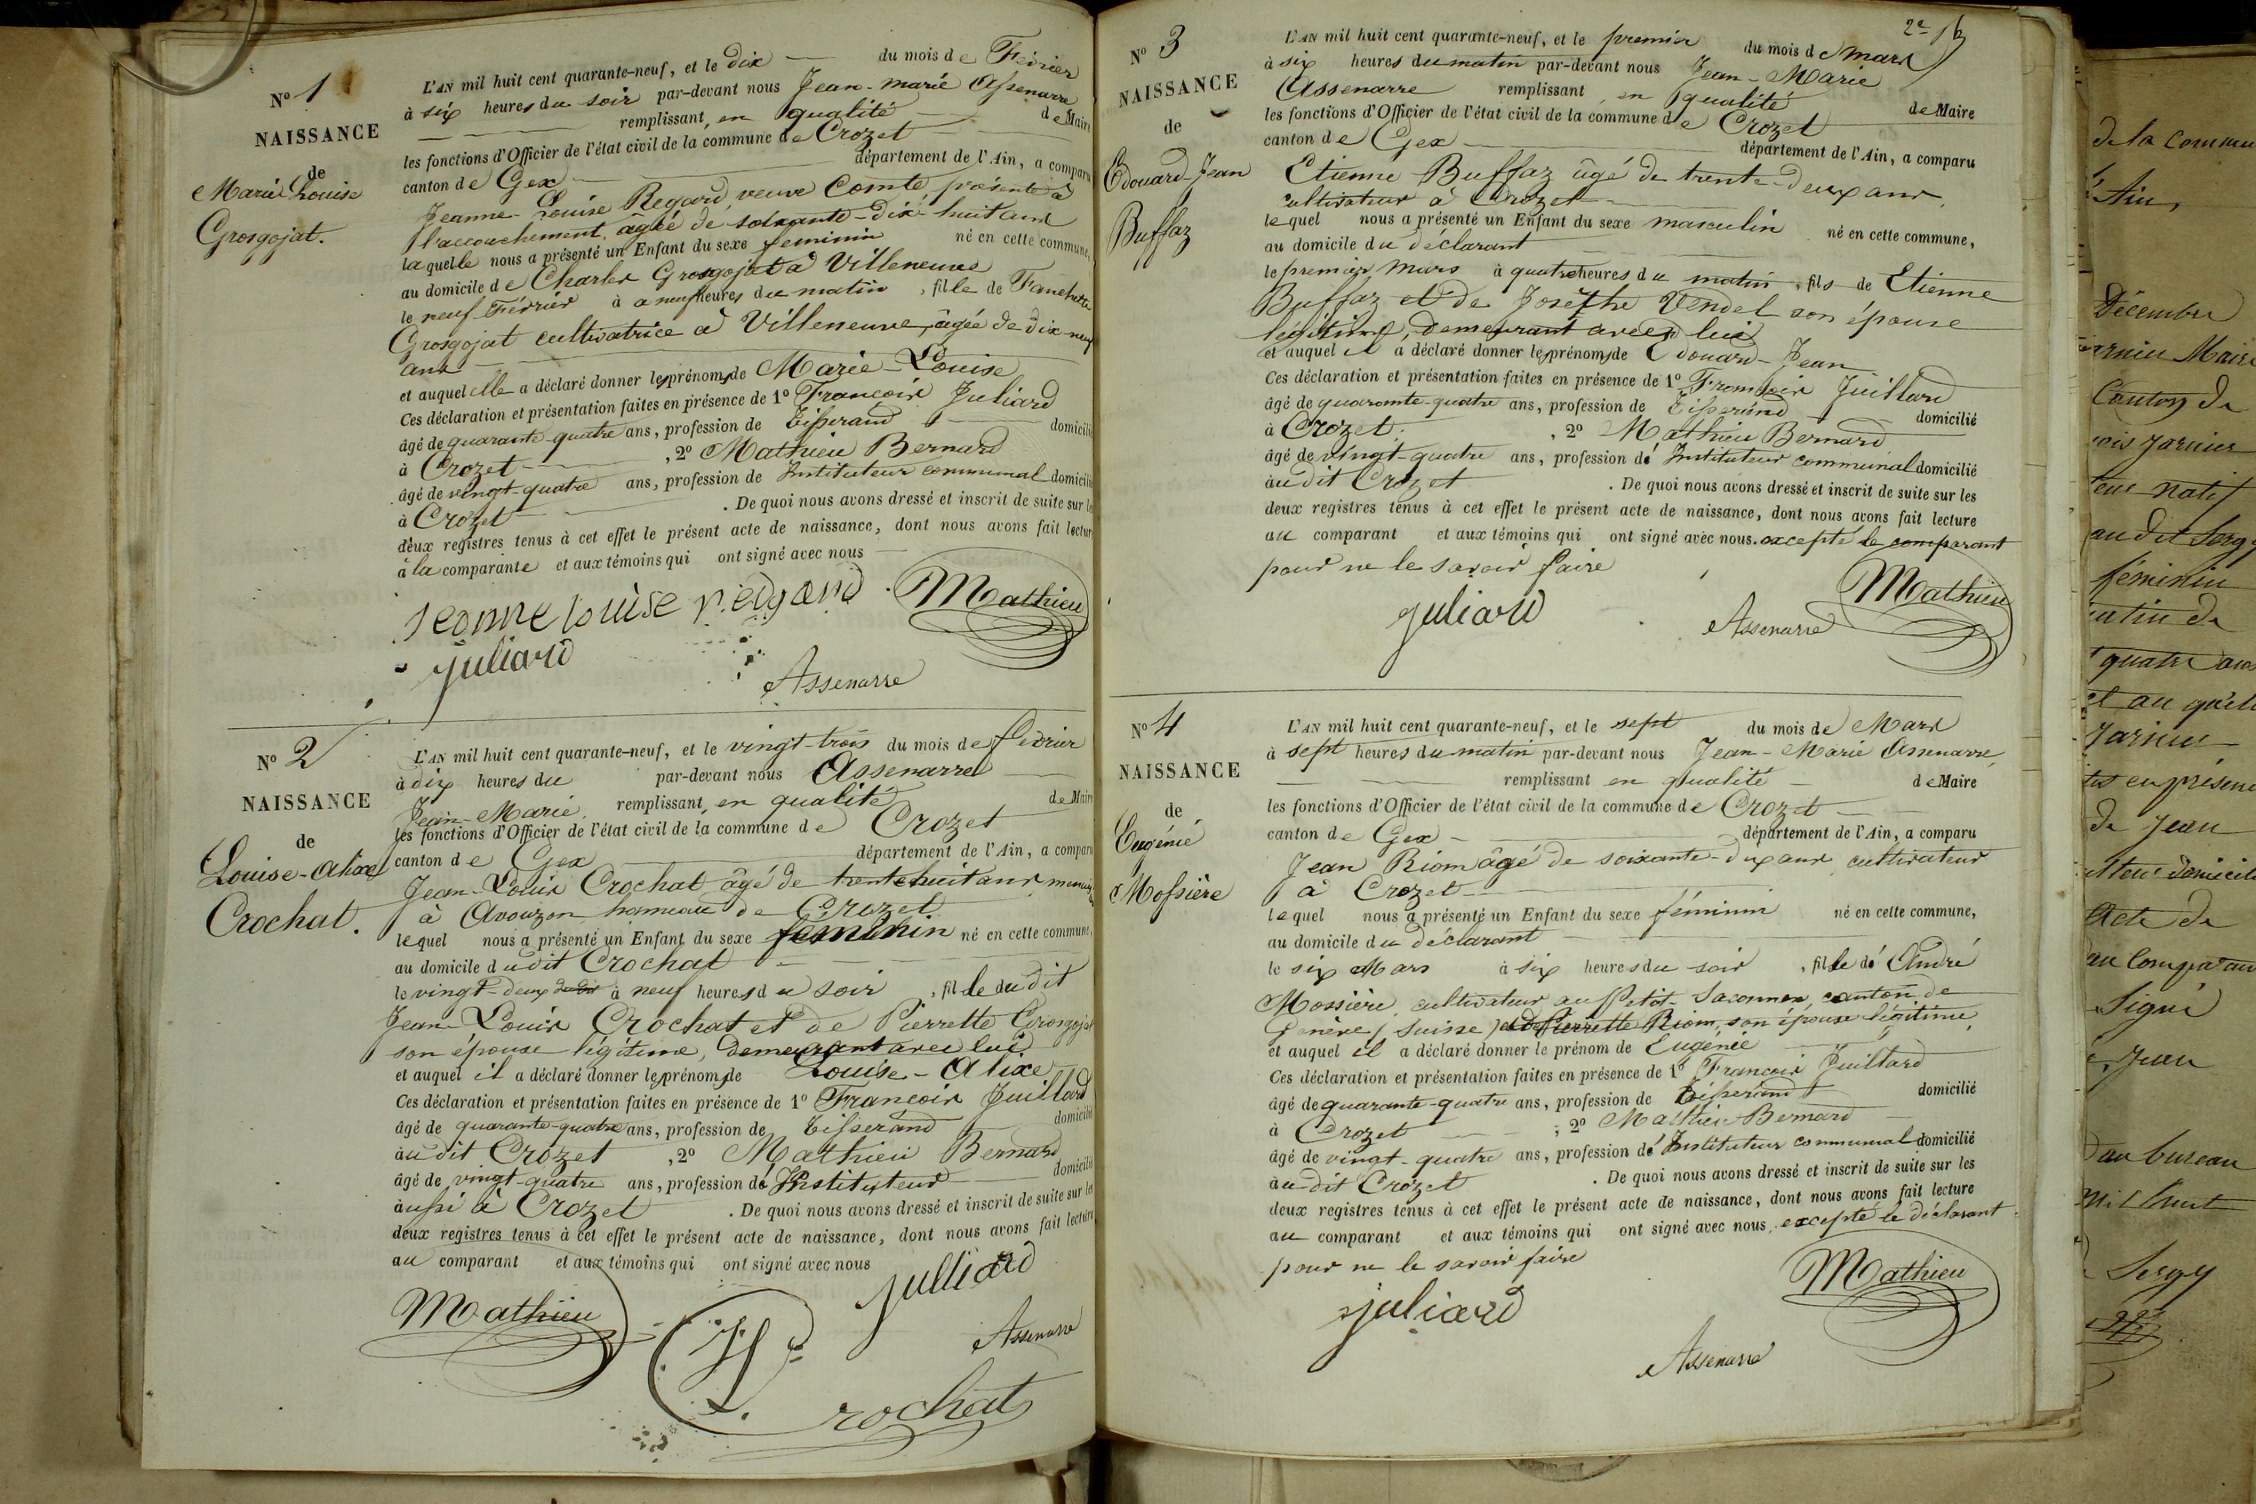 N° 1
NAISSANCE
de
Marie Louise
Grosgojat.
L'AN mil huit cent quarante-neuf, et le dix du mois de Février
à six heures du soir par-devant nous Jean-marie Assenarre
remplissant, en qualité de Maire
les fonctions d'Officier de l'état civil de la commune de Crozet
canton de Gex département de l'Ain, a comparu
Jeanne-Louise Regard, veuve Comte, présente à
l'accouchement, âgée de soixante-dix-huit ans
laquelle nous a présenté un Enfant du sexe féminin né en cette commune,
au domicile de Charles Grosgojat à Villeneuve
le neuf Février à neuf heures du matin, fille de Fanchette
Grosgojat cultivatrice à Villeneuve, âgée de dix-neuf
ans
et auquel elle a déclaré donner les prénoms de Marie-Louise
Ces déclaration et présentation faites en présence de 1° François Juliard
âgé de quarante-quatre ans, profession de Tisserand domicilié
à Crozet, 2° Mathieu Bernard
âgé de vingt-quatre ans, profession de Instituteur communal domicilié
à Crozet. De quoi nous avons dressé et inscrit de suite sur les
deux registres tenus à cet effet le présent acte de naissance, dont nous avons fait lecture
à la comparante et aux témoins qui ont signé avec nous
Jeanne louise regard Mathieu
juliard
Assenarre
N° 2
NAISSANCE
de
Louise-Alixe
Crochat.
L'AN mil huit cent quarante-neuf, et le vingt-trois du mois de février
à dix heures du par-devant nous Assenarre
Jean-Marie remplissant, en qualité de Maire
les fonctions d'Officier de l'état civil de la commune de Crozet
canton de Gex département de l'Ain, a comparu
Jean-Louis Crochat âgé de trente huit ans
à Avouzon hameau de Crozet
lequel nous a présenté un Enfant du sexe féminin né en cette commune,
au domicile dudit Crochat
le vingt-deux à neuf heures du soir, fille dudit
Jean-Louis Crochat et de Pierrette Grosgojat
son épouse légitime, demeurant avec lui
et auquel il a déclaré donner les prénoms de Louise-Alixe
Ces déclaration et présentation faites en présence de 1° François Juillard
âgé de quarante-quatre ans, profession de tisserand domicilié
audit Crozet, 2° Mathieu Bernard
âgé de vingt-quatre ans, profession de Instituteur domicilié
aussi à Crozet. De quoi nous avons dressé et inscrit de suite sur les
deux registres tenus à cet effet le présent acte de naissance, dont nous avons fait lecture
au comparant et aux témoins qui ont signé avec nous
juliard
Mathieu
Assenarre
Crochat
2e
N° 3
NAISSANCE
de
Edouard-Jean
Buffaz
L'AN mil huit cent quarante-neuf, et le premier du mois de mars
à six heures du matin par-devant nous Jean-Marie
Assenarre remplissant, en qualité de Maire
les fonctions d'Officier de l'état civil de la commune de Crozet
canton de Gex département de l'Ain, a comparu
Etienne Buffaz âgé de trente-deux ans,
cultivateur à Crozet
lequel nous a présenté un Enfant du sexe masculin né en cette commune,
au domicile du déclarant
le premier Mars à quatre heures du matin, fils de Etienne
Buffaz et de Josèthe Vendel son épouse
légitime, demeurant avec lui
et auquel il a déclaré donner les prénoms de Edouard-Jean
Ces déclaration et présentation faites en présence de 1° François Juillard
âgé de quarante-quatre ans, profession de Tisserand domicilié
à Crozet, 2° Mathieu Bernard
âgé de vingt-quatre ans, profession de Instituteur communal domicilié
audit Crozet. De quoi nous avons dressé et inscrit de suite sur les
deux registres tenus à cet effet le présent acte de naissance, dont nous avons fait lecture
au comparant et aux témoins qui ont signé avec nous. excepté le comparant
pour ne le savoir faire
juliard Assenarre Mathieu
N° 4
NAISSANCE
de
Eugénie
Mossière
L'AN mil huit cent quarante-neuf, et le sept du mois de Mars
à sept heures du matin par-devant nous Jean-Marie Assenarre,
remplissant en qualité de Maire
les fonctions d'Officier de l'état civil de la commune de Crozet
canton de Gex département de l'Ain, a comparu
Jean Riom âgé de soixante-dix ans cultivateur
à Crozet
lequel nous a présenté un Enfant du sexe féminin né en cette commune,
au domicile du déclarant
le six Mars à six heures du soir, fille de André
Mossière, cultivateur au Petit-Saconnex, canton de
Genève (Suisse) et de Pierrette Riom, son épouse légitime,
et auquel il a déclaré donner le prénom de Eugénie
Ces déclaration et présentation faites en présence de 1° François Juillard
âgé de quarante-quatre ans, profession de tisserand domicilié
à Crozet, 2° Mathieu Bernard
âgé de vingt-quatre ans, profession de Instituteur communal domicilié
audit Crozet. De quoi nous avons dressé et inscrit de suite sur les
deux registres tenus à cet effet le présent acte de naissance, dont nous avons fait lecture
au comparant et aux témoins qui ont signé avec nous, excepté le déclarant
pour ne le savoir faire
juliard Mathieu
Assenarre
de la commu
Ain,
Décembre
Maire
Canton de
natif
féminin
quatre ans
de Jean
domicili
Acte de
Signé
Jean
au bureau
Mil huit
Sergy